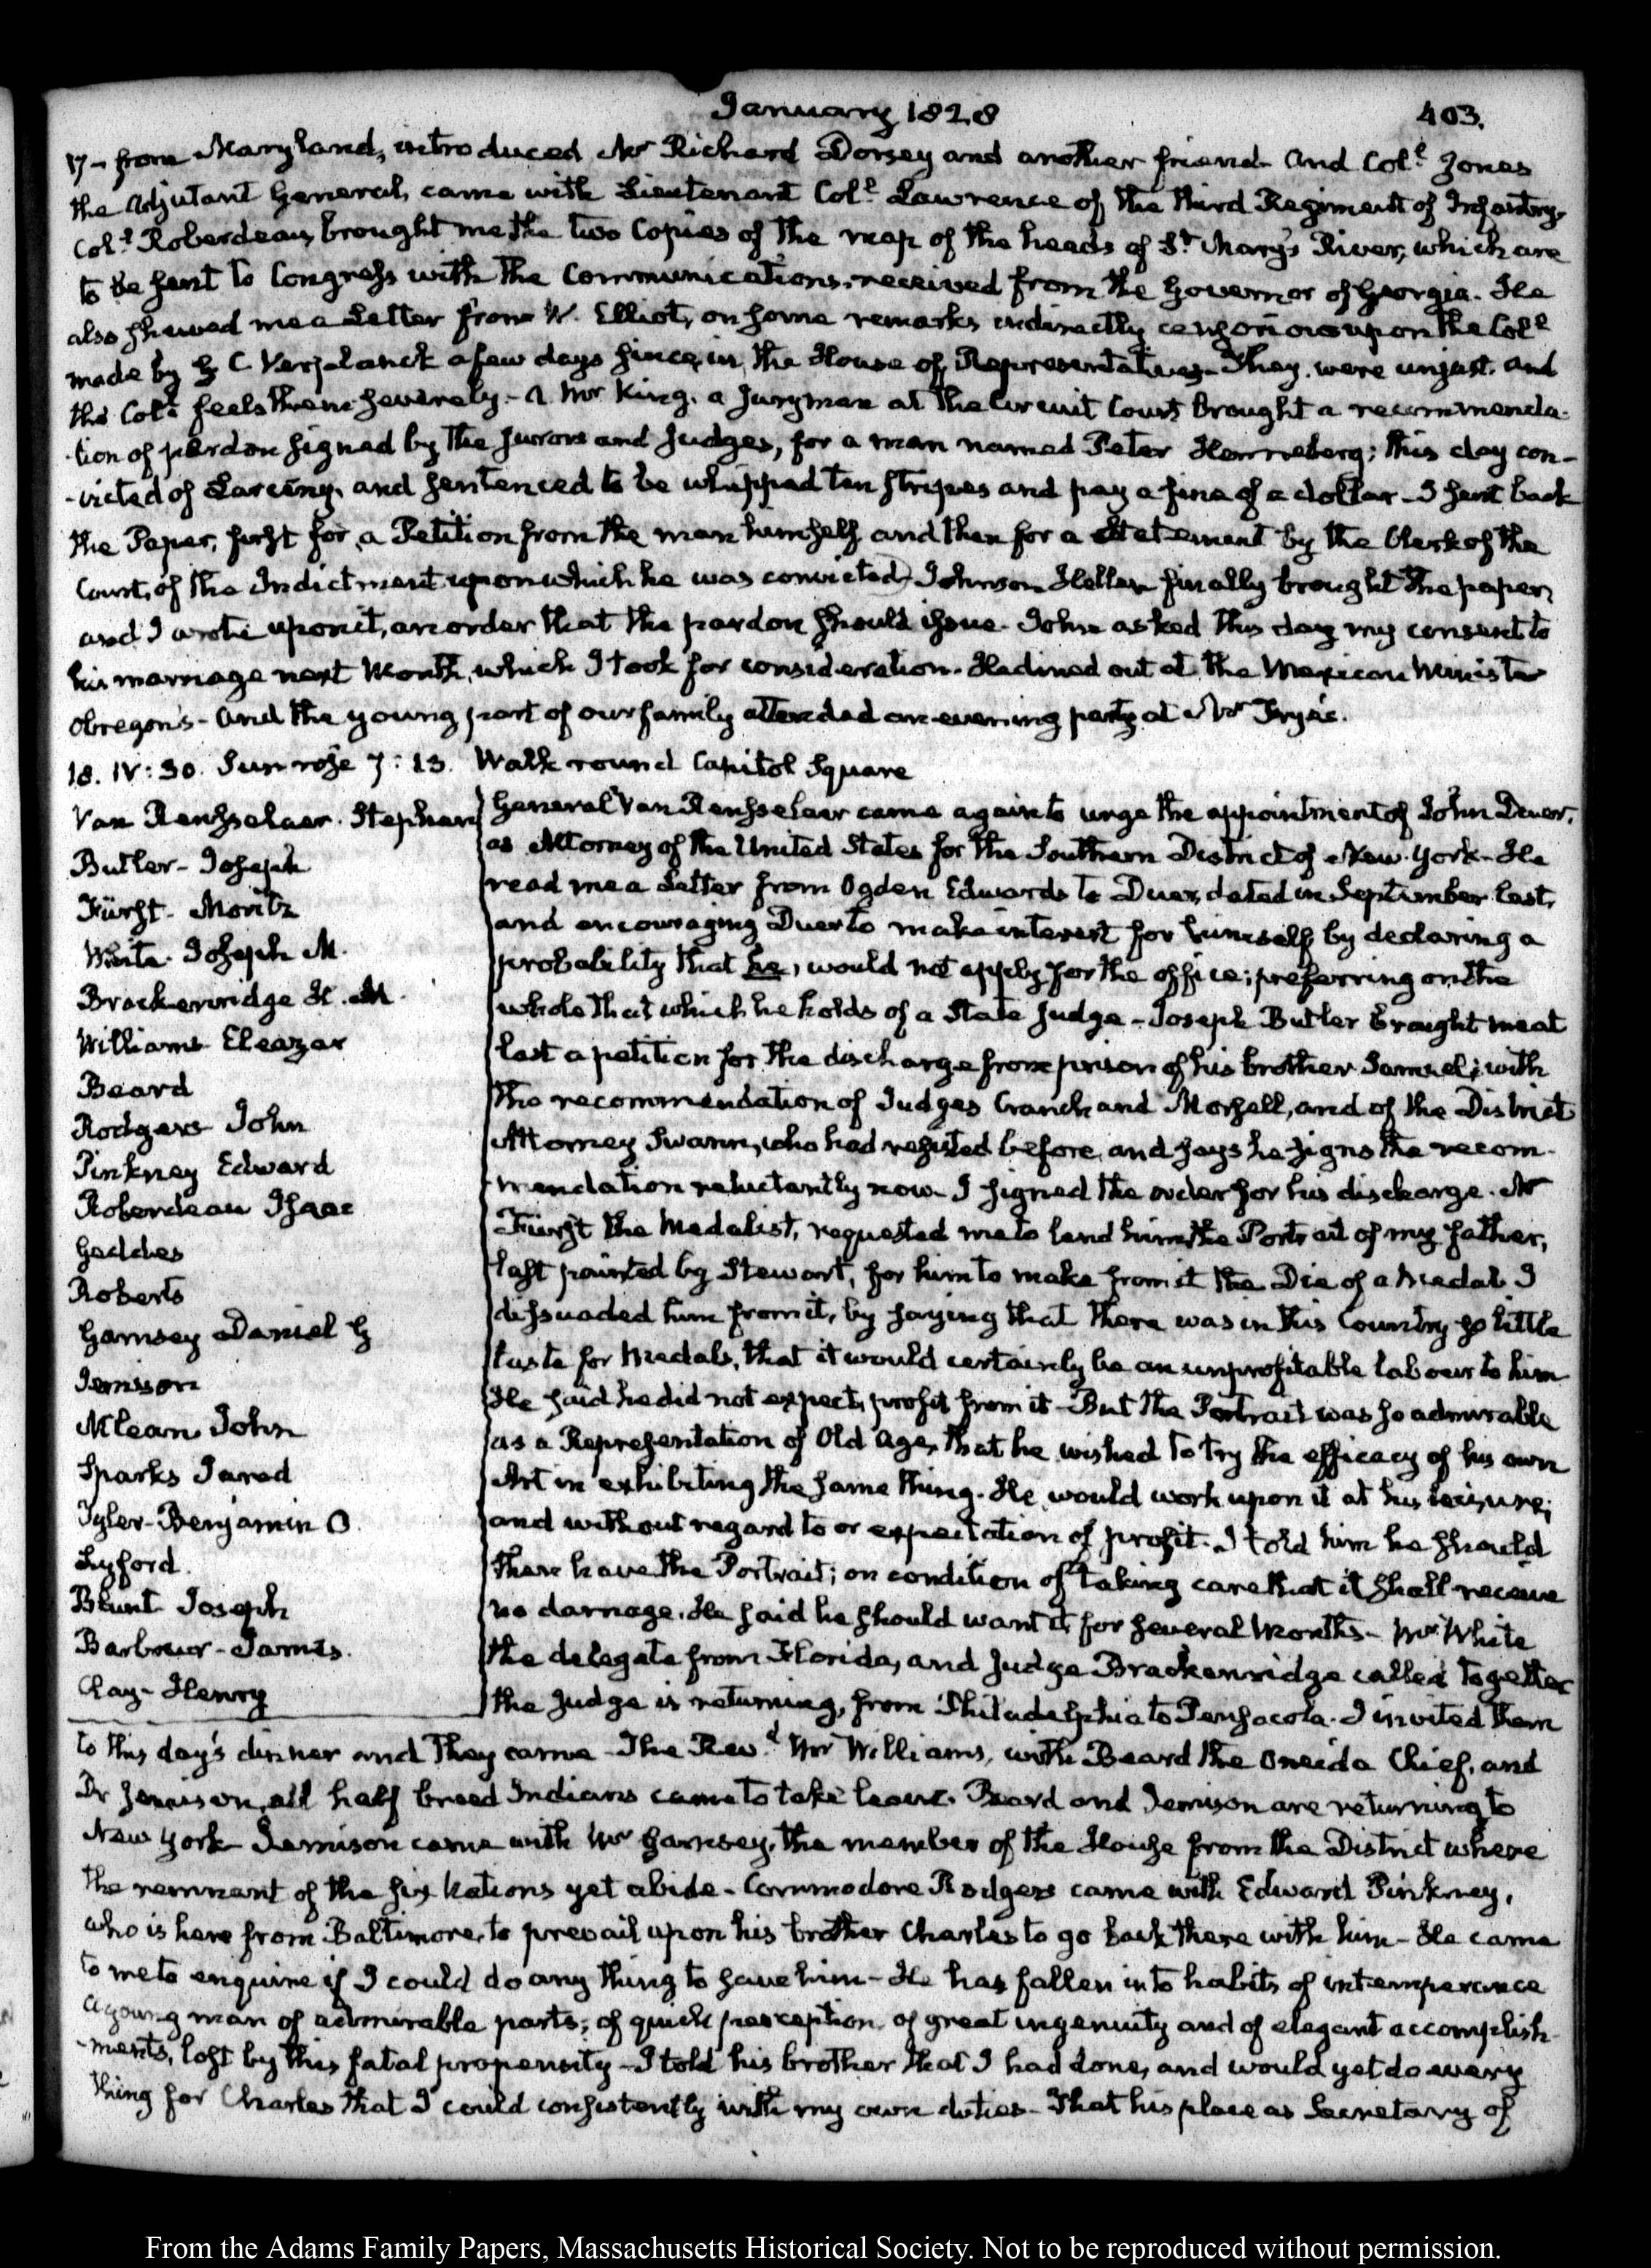 January 1828
403.
17 - from Maryland, introduced Mr Richard Dorsey and another friend - And Coll. Jones
the Adjutant General, came with Lieutenant Coll. Lawrence of the third Regiment of Infantry.
Coll. Roberdeau, brought me the two Copies of the map of the heads of St. Mary's River, which are
to be sent to Congress with the Communications, received from the Governor of Georgia. He
also shewed me a Letter from W. Elliot, on some remarks indirectly censorious upon the Coll.
made by G. C. Verplanck a few days since, in the House of Representatives - They were unjust, and
the Coll. feels them severely - A Mr King, a juryman at the Circuit Court brought a recommenda-
-tion of pardon signed by the jurors and judges, for a man named Peter Henneberg; this day con-
-victed of Larceny, and sentenced to be whipped ten stripes and pay a fine of a dollar - I sent back
the Paper, first for a Petition from the man himself, and then for a Statement by the Clerk of the
Court, of the Indictment upon which he was convicted - Johnson Hellen finally brought the paper,
and I wrote upon it, an order that the pardon should issue. John asked this day my consent to
his marriage next Month, which I took for consideration. He dined out at the Mexican Minister
Obregon's - And the young part of our family attended an evening party at Mr Frye's.
18. IV:30. Sun rose 7:13. Walk round Capitol Square
Van Rensselaer. Stephen
Butler - Joseph
Fürst - Moritz
White - Joseph M.
Brackenridge H. M.
Williams Eleazar
Beard
Rodgers John
Pinkney Edward
Roberdeau Isaac
Geddes
Roberts
Garnsey Daniel G
Jemison
Mclean John
Sparks Jared
Tyler - Benjamin O.
Lyford.
Blunt Joseph
Barbour - James.
Clay - Henry
General Van Rensselaer came again to urge the appointment of John Duer,
as Attorney of the United States for the Southern District of New-York - He
read me a Letter from Ogden Edwards to Duer, dated in September last,
and encouraging Duer to make interest for himself, by declaring a
probability that he, would not apply for the office; preferring on the
whole that which he holds of a State judge - Joseph Butler brought me at
last a petition for the discharge from prison of his brother Samuel; with
the recommendation of Judges Cranch and Morsell, and of the District
Attorney Swann, who had refused before, and says he signs the recom-
-mendation reluctantly now - I signed the order for his discharge. Mr
Fürst the Medalist, requested me to lend him the Portrait of my father,
last painted by Stewart, for him to make from it the Die of a Medal. I
dissuaded him from it, by saying that there was in this Country so little
taste for medals, that it would certainly be an unprofitable labour to him
He said he did not expect profit from it - But the Portrait was so admirable
as a Representation of Old Age, that he wished to try the efficacy of his own
Art in exhibiting the same thing. He would work upon it at his leisure;
and without regard to or expectation of profit. I told him he should
then have the Portrait; on condition of taking care that it shall receive
no damage. He said he should want it, for several Months - Mr White
the delegate from Florida, and Judge Brackenridge called together
the Judge is returning, from Philadelphia to Pensacola. I invited them
to this day's dinner and they came - The Revd. Mr Williams, with Beard the Oneida Chief, and
Dr Jemison, all half breed Indians came to take leave. Beard and Jemison are returning to
New York Jemison came with Mr Garnsey, the member of the House from the District where
the remnant of the six Nations yet abide - Commodore Rodgers came with Edward Pinkney,
who is here from Baltimore, to prevail upon his brother Charles to go back there with him - He came
to me to enquire if I could do any thing to save him - He has fallen into habits of intemperance
a young man of admirable parts; of quick perception, of great ingenuity and of elegant accomplish-
-ments, lost by this fatal propensity - I told his brother that I had done, and would yet do every
thing for Charles that I could consistently with my own duties - That his place as Secretary of
From the Adams Family Papers, Massachusetts Historical Society. Not to be reproduced without permission.